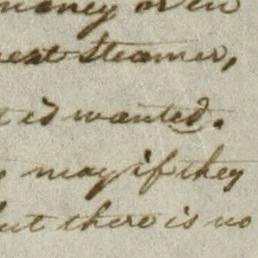 money or en
next Steamer,
it is wanted.
may if they
but there is no